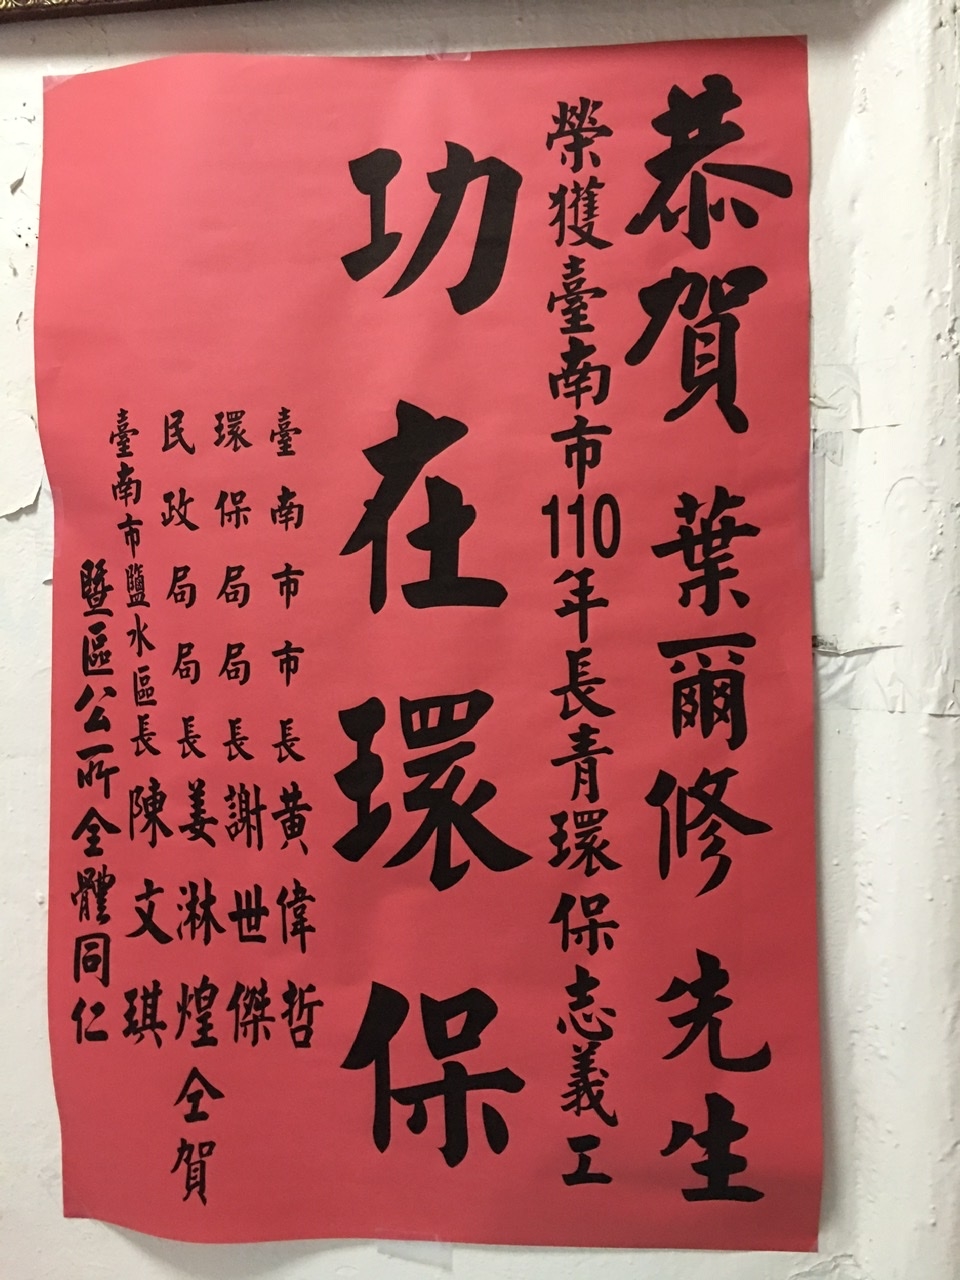 恭賀 葉爾修 先生
榮獲臺南市110年長青環保志義工
功在環保
臺南市市長黃偉哲
環保局局長謝世傑
民政局局長姜淋煌
臺南市鹽水區長陳文琪
暨區公所全體同仁
仝賀